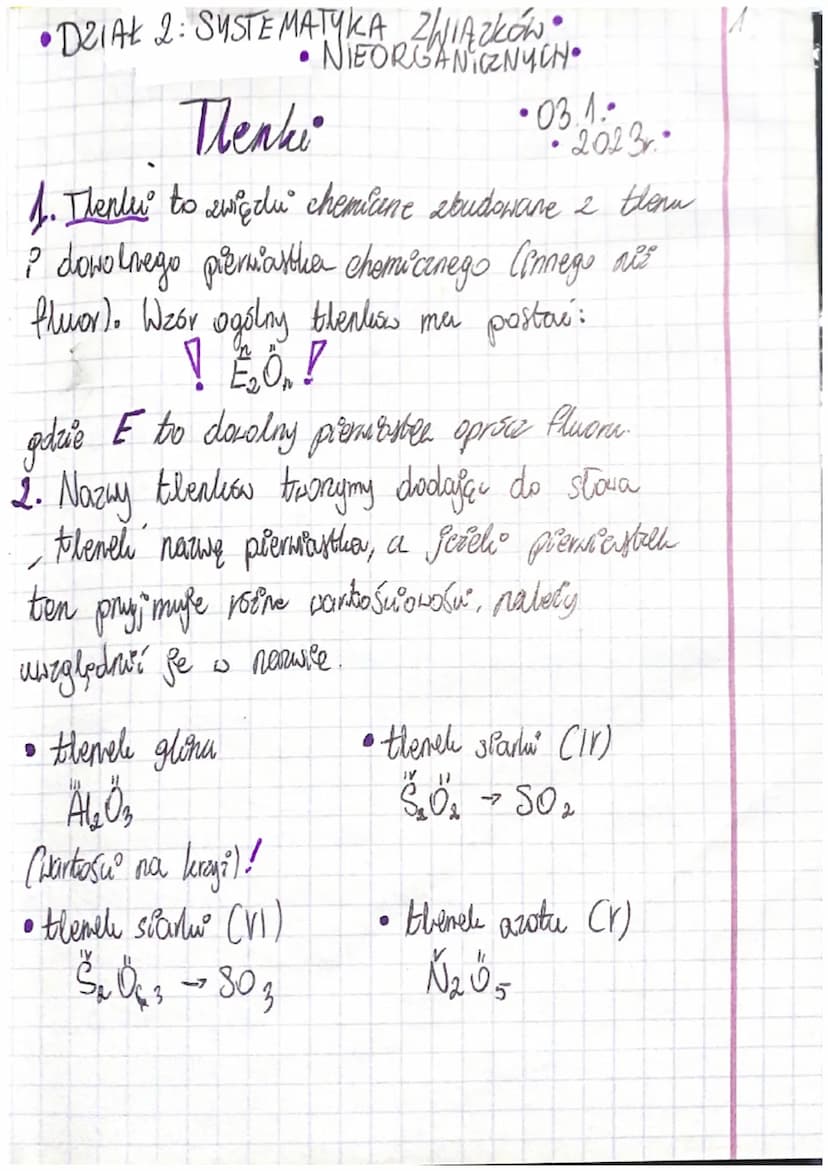 • DZIAŁ 2: SYSTEMATYKA ZWIĄZKÓW •
• NIEORGANICZNYCH •
1.
Tlenki
• 03.1. •
• 2023r. •
1. Tlenki to związki chemiczne zbudowane z tlenu
i dowolnego pierwiastka chemicznego (innego niż
fluor). Wzór ogólny tlenków ma postać:
! E₂ⁿOₙᴵᴵ !
gdzie E to dowolny pierwiastek oprócz fluoru.
2. Nazwy tlenków tworzymy dodając do słowa
"tlenek" nazwę pierwiastka, a jeżeli pierwiastek
ten przyjmuje różne wartościowości, należy
uwzględnić je w nazwie.
• tlenek glinu
• tlenek siarki (IV)
Al₂ᴵᴵᴵO₃ᴵᴵ
S₂ᴵⱽO₂ᴵᴵ → SO₂
(wartości na krzyż)!
• tlenek siarki (VI)
• tlenek azotu (V)
S₂ⱽᴵO₆ ₃ᴵᴵ → SO₃
N₂ⱽO₅ᴵᴵ